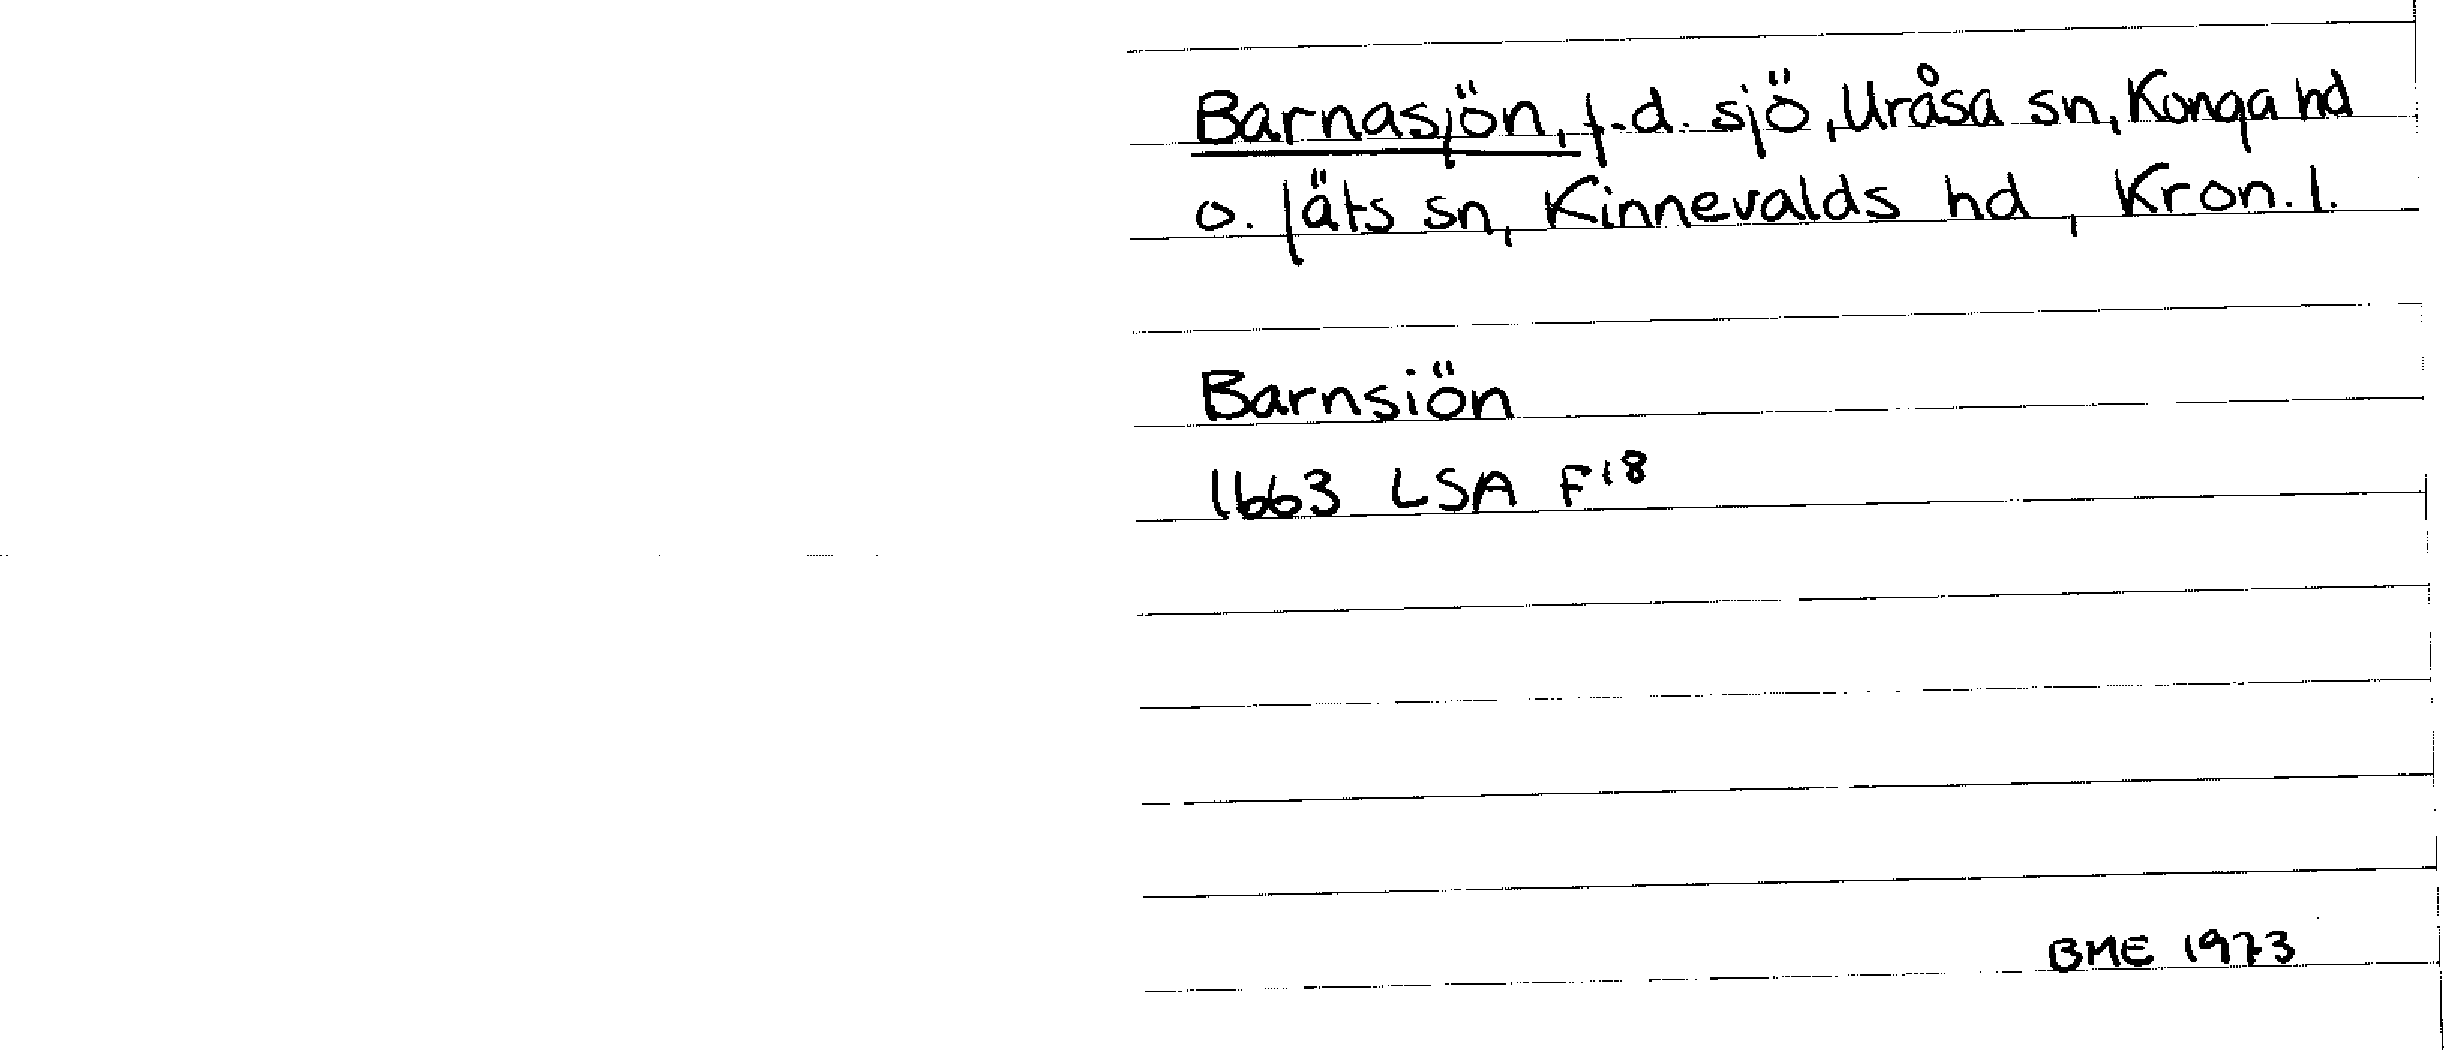 Barnasjön, f.d. sjö, Uråsa sn, Konga hd
o. Jäts sn, Kinnevalds hd, Kron. l.
Barnsiön
1663 LSA F18
BME 1973